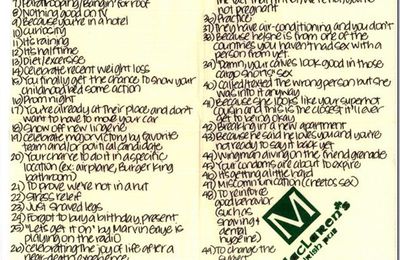 7) Peroaroofing/Bangin' for roof
8) Nothing good on TV
9) Because you're in a hotel
10) Curiosity
11) It's raining
12) It's halftime
13) Diet/exercise
14) Celebrate recent weight loss
15) You finally get the chance to show your
childhood bed some action
16) Prom night
17) You're already at their place and don't
want to have to move your car
18) Show off new lingerie
19) Celebrate major victory by favorite
team and/or political candidate
20) Your chance to do it in a specific
location (ex: airplane, Burger King
bathroom)
21) To prove we're not in a rut
22) Stress relief
23) Just shaved legs
24) Forgot to buy a birthday present
25) "Let's get it on" by Marvin Gaye is
playing on the radio
26) Celebrating the joy of life after a
near death experience
not pregnant
36) Practice
37) They have air-conditioning and you don't
38) Because he/she is from one of the
countries you haven't had sex with a
person from yet
39) "Damn, your calves look good in those
cargo shorts" sex
40) Called/texted the wrong person but she
was into it anyway
41) Because she looks like your super hot
cousin and this is the closest it'll ever
get to being okay
42) Breaking in a new apartment
43) Because he said he loves you and you're
not ready to say it back yet
44) Wingman diving on the friend grenade
45) Your condoms are about to expire
46) It's getting a little hazy
47) Miscommunication (Cheetos sex)
48) To reinforce
good behavior
(such as
shaving +
dental
hygiene)
49) To change the
M
MacLaren's
Irish Pub